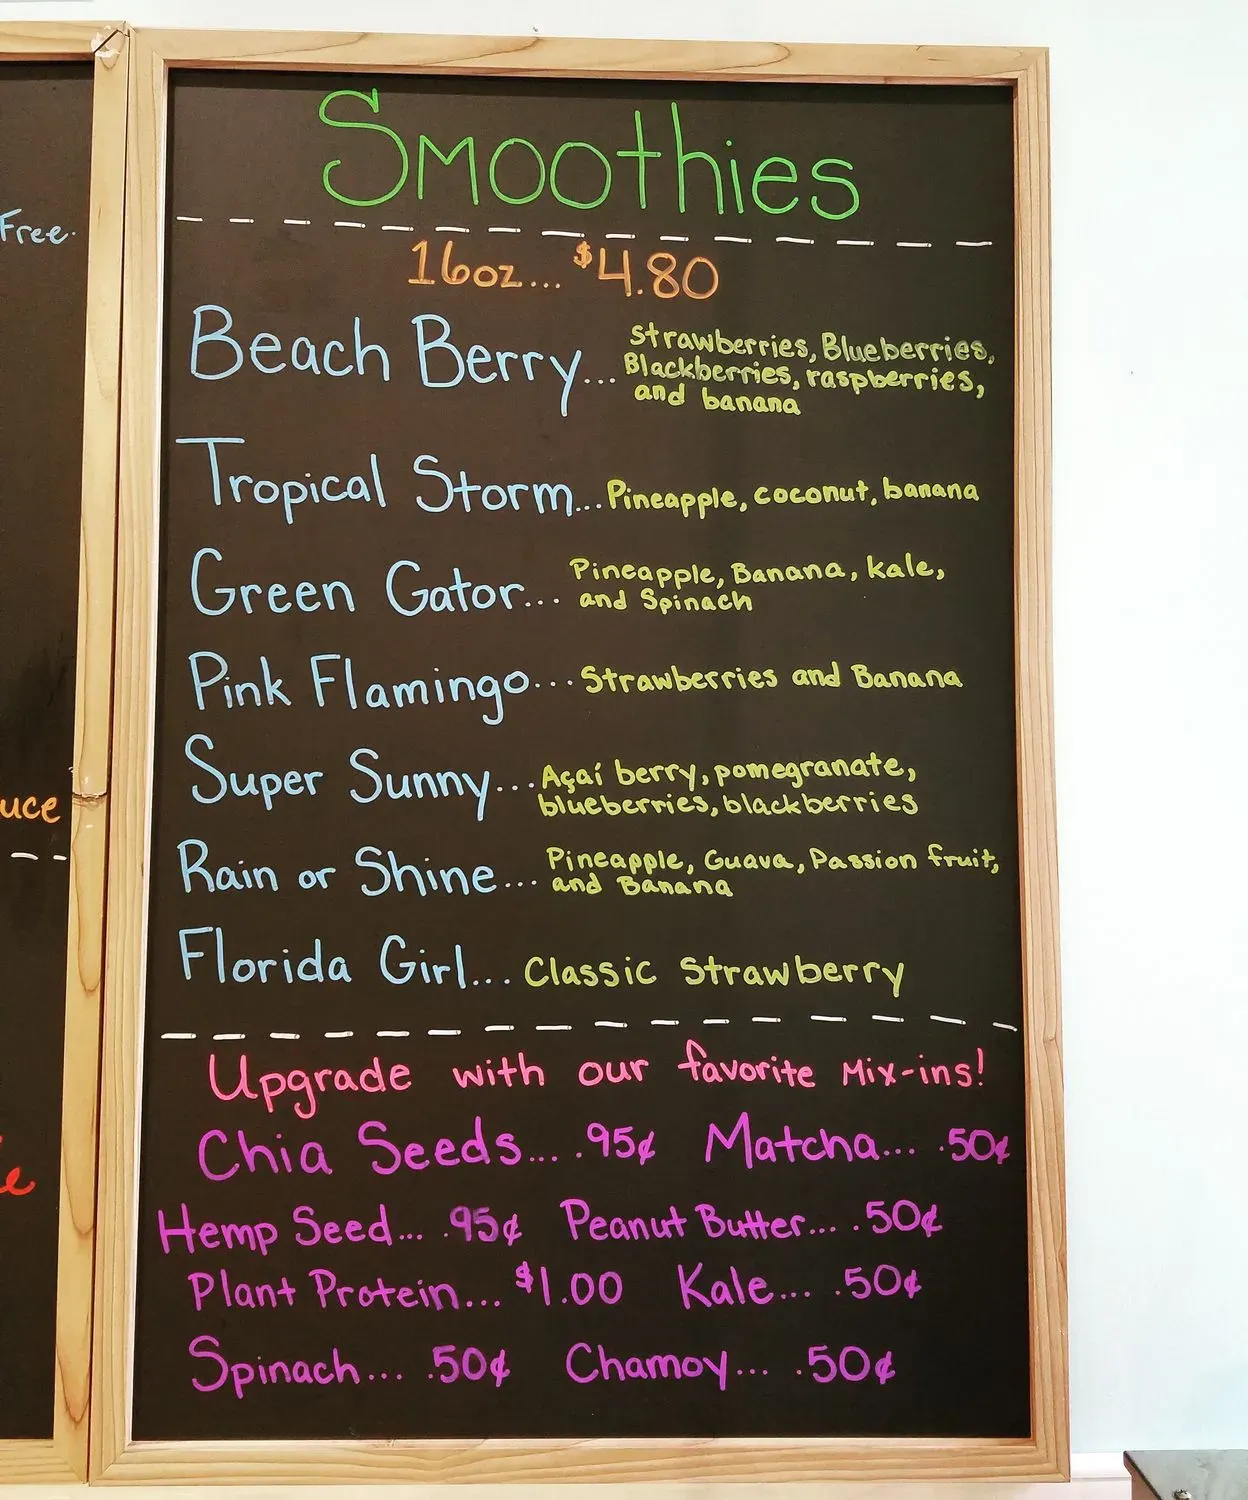 Free.
uce
Smoothies
16oz... $4.80
Beach Berry... strawberries, Blueberries,
Blackberries, raspberries,
and banana
Tropical Storm... Pineapple, coconut, banana
Green Gator... Pineapple, Banana, Kale,
and Spinach
Pink Flamingo... Strawberries and Banana
Super Sunny... Açaí berry, pomegranate,
blueberries, blackberries
Rain or Shine... Pineapple, Guava, Passion fruit,
and Banana
Florida Girl... Classic Strawberry
Upgrade with our favorite Mix-ins!
Chia Seeds... .95¢ Matcha... .50¢
Hemp Seed... .95¢ Peanut Butter... .50¢
Plant Protein... $1.00 Kale... .50¢
Spinach... .50¢ Chamoy... .50¢